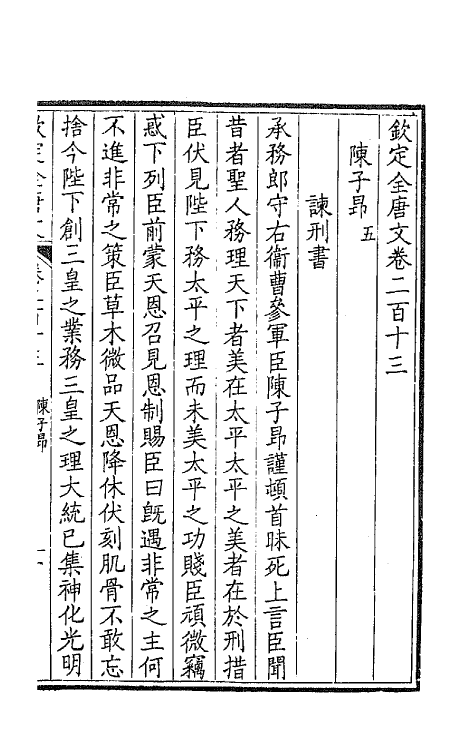 欽定全唐文卷二百十三
陳子昂五
諫刑書
承務郎守右衞曹參軍臣陳子昂謹頓首昧死上言臣聞
昔者聖人務理天下者美在太平太平之美者在於刑措
臣伏見陛下務太平之理而未美太平之功賤臣頑微竊
惑下列臣前蒙天恩召見恩制賜臣曰旣遇非常之主何
不進非常之策臣草木微品天恩降休伏刻肌骨不敢忘
捨今陛下創三皇之業務三皇之理大統已集神化光明
陳子昂
一